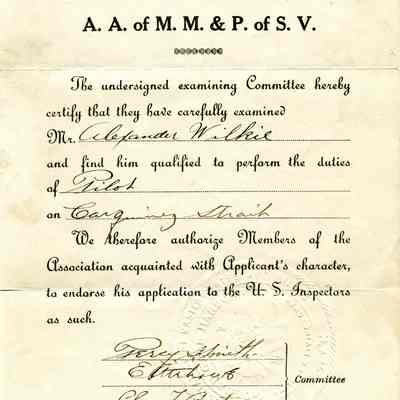 A. A. of M. M. & P. of S. V.
The undersigned examining Committee hereby
certify that they have carefully examined
Mr. Alexander Wilkie
and find him qualified to perform the duties
of Pilot
on Carquinez Strait
We therefore authorize Members of the
Association acquainted with Applicant's character,
to endorse his application to the U. S. Inspectors
as such.
Percy Smith
Committee